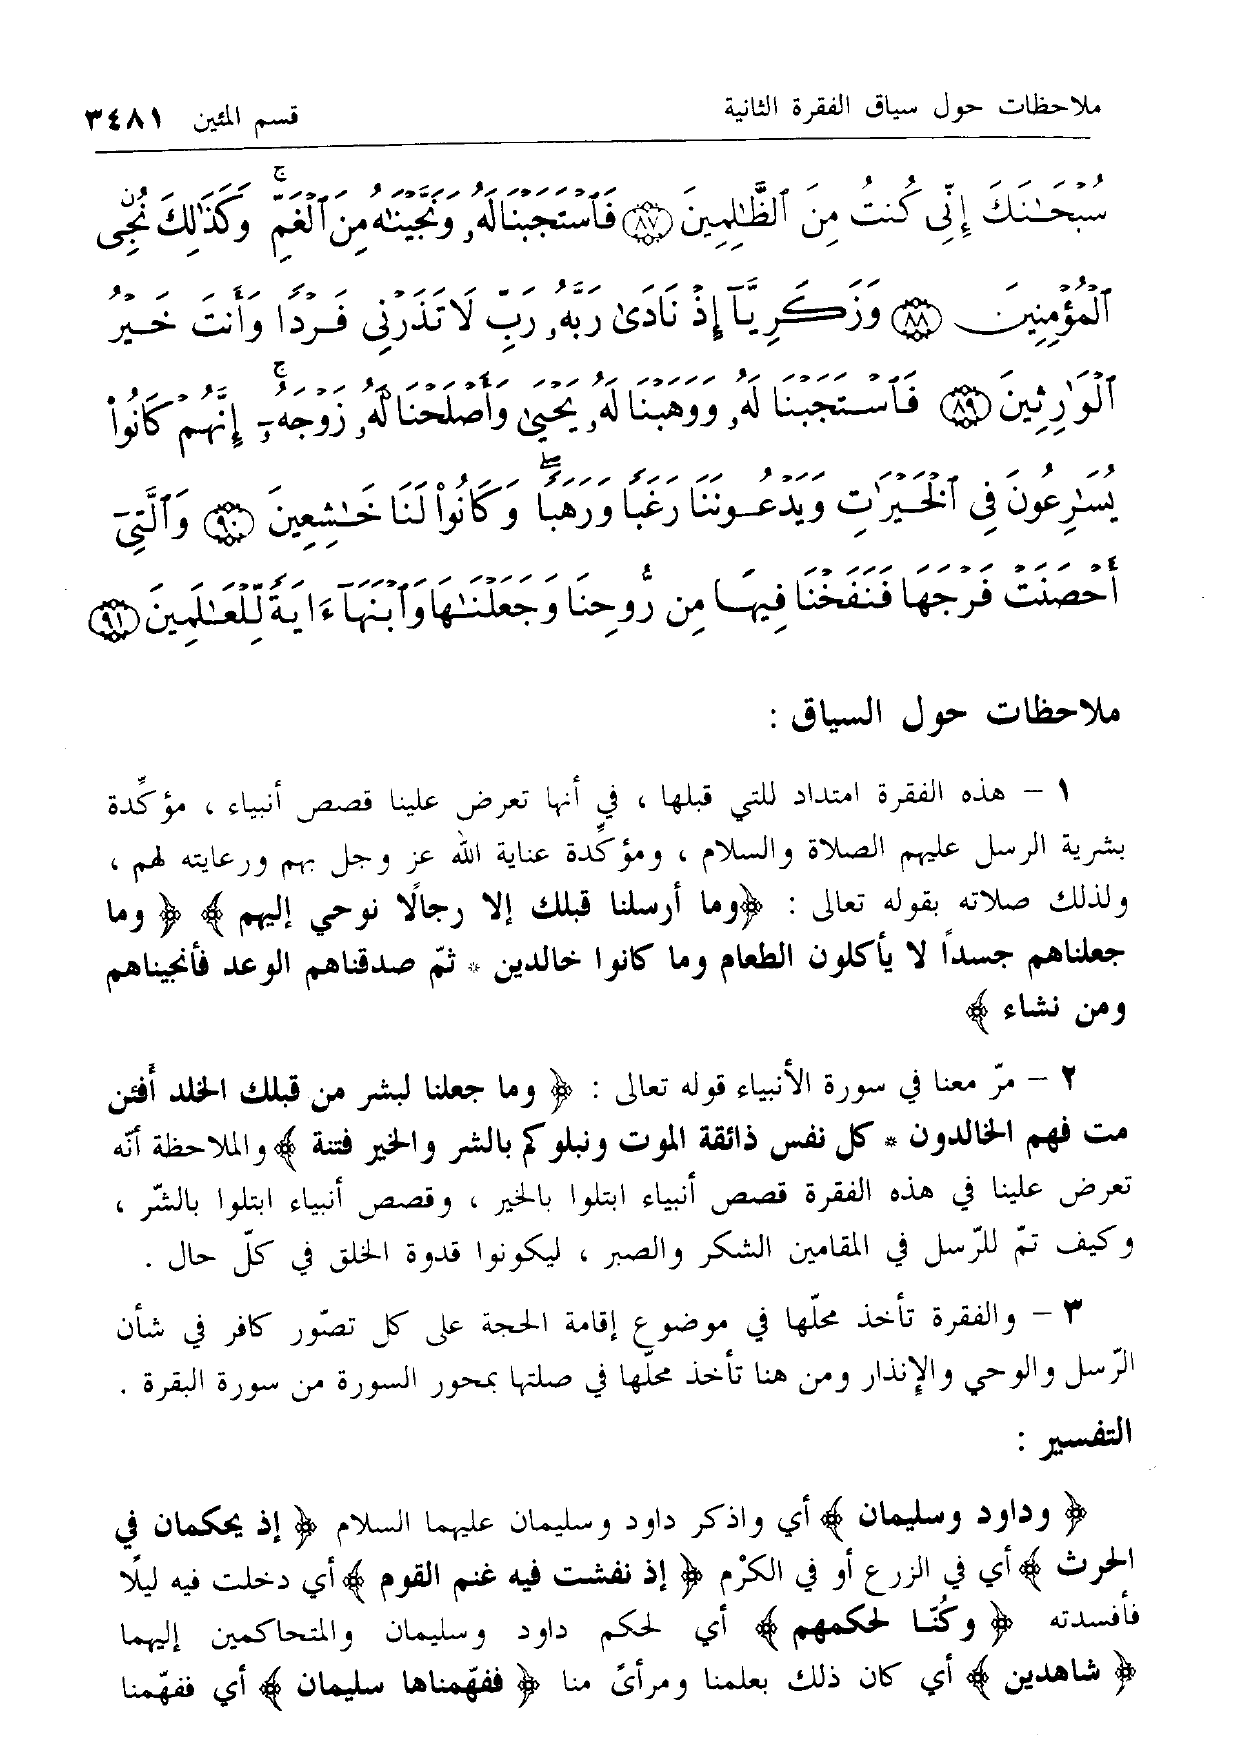 ملاحظات حول سياق الفقرة الثانية
قسم المئين ٣٤٨١
سُبْحَٰنَكَ إِنِّى كُنتُ مِنَ ٱلظَّٰلِمِينَ ﴿٨٧﴾ فَٱسْتَجَبْنَا لَهُۥ وَنَجَّيْنَٰهُ مِنَ ٱلْغَمِّ ۚ وَكَذَٰلِكَ نُۨجِى
ٱلْمُؤْمِنِينَ ﴿٨٨﴾ وَزَكَرِيَّآ إِذْ نَادَىٰ رَبَّهُۥ رَبِّ لَا تَذَرْنِى فَرْدًا وَأَنتَ خَيْرُ
ٱلْوَٰرِثِينَ ﴿٨٩﴾ فَٱسْتَجَبْنَا لَهُۥ وَوَهَبْنَا لَهُۥ يَحْيَىٰ وَأَصْلَحْنَا لَهُۥ زَوْجَهُۥٓ ۚ إِنَّهُمْ كَانُوا۟
يُسَٰرِعُونَ فِى ٱلْخَيْرَٰتِ وَيَدْعُونَنَا رَغَبًا وَرَهَبًا ۖ وَكَانُوا۟ لَنَا خَٰشِعِينَ ﴿٩٠﴾ وَٱلَّتِىٓ
أَحْصَنَتْ فَرْجَهَا فَنَفَخْنَا فِيهَا مِن رُّوحِنَا وَجَعَلْنَٰهَا وَٱبْنَهَآ ءَايَةً لِّلْعَٰلَمِينَ ﴿٩١﴾
ملاحظات حول السياق :
١ – هذه الفقرة امتداد للتي قبلها ، في أنها تعرض علينا قصص أنبياء ، مؤكِّدة
بشرية الرسل عليهم الصلاة والسلام ، ومؤكِّدة عناية الله عز وجل بهم ورعايته لهم ،
ولذلك صلاته بقوله تعالى : ﴿وما أرسلنا قبلك إلا رجالًا نوحي إليهم ﴾ ﴿ وما
جعلناهم جسداً لا يأكلون الطعام وما كانوا خالدين * ثمّ صدقناهم الوعد فأنجيناهم
ومن نشاء ﴾
٢ – مرّ معنا في سورة الأنبياء قوله تعالى : ﴿ وما جعلنا لبشر من قبلك الخلد أَفئن
مت فهم الخالدون * كل نفس ذائقة الموت ونبلوكم بالشر والخير فتنة ﴾ والملاحظة أنّه
تعرض علينا في هذه الفقرة قصص أنبياء ابتلوا بالخير ، وقصص أنبياء ابتلوا بالشّر ،
وكيف تمّ للرّسل في المقامين الشكر والصبر ، ليكونوا قدوة الخلق في كلّ حال .
٣ – والفقرة تأخذ محلّها في موضوع إقامة الحجة على كل تصّور كافر في شأن
الرّسل والوحي والإنذار ومن هنا تأخذ محلّها في صلتها بمحور السورة من سورة البقرة .
التفسير :
﴿ وداود وسليمان ﴾ أي واذكر داود وسليمان عليهما السلام ﴿ إذ يحكمان في
الحرث ﴾ أي في الزرع أو في الكرْم ﴿ إذ نفشت فيه غنم القوم ﴾ أي دخلت فيه ليلًا
فأفسدته ﴿ وكُنّا لحكمهم ﴾ أي لحكم داود وسليمان والمتحاكمين إليهما
﴿ شاهدين ﴾ أي كان ذلك بعلمنا ومرأىً منا ﴿ ففهّمناها سليمان ﴾ أي ففهّمنا